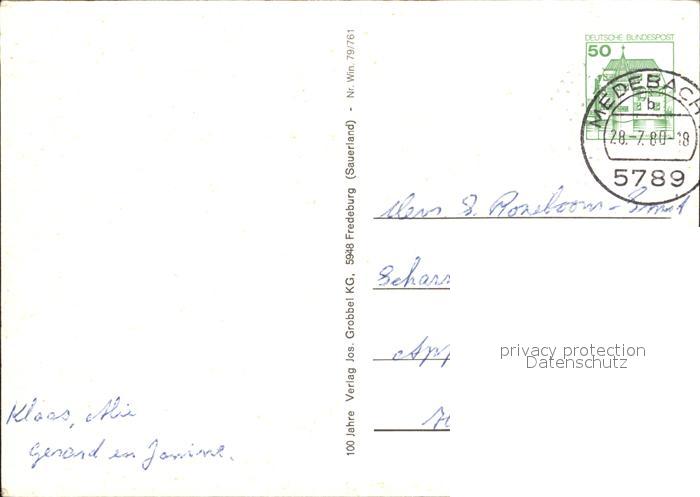 DEUTSCHE BUNDESPOST
50
MEDEBACH
b
28.-7.80-18
5789
Mevr. S. Rozeboom - Smit
Scharr
App
privacy protection
Datenschutz
Klaas, Alie
Gerard en Janine.
100 Jahre Verlag Jos. Grobbel KG, 5948 Fredeburg (Sauerland) - Nr. Win. 79/761